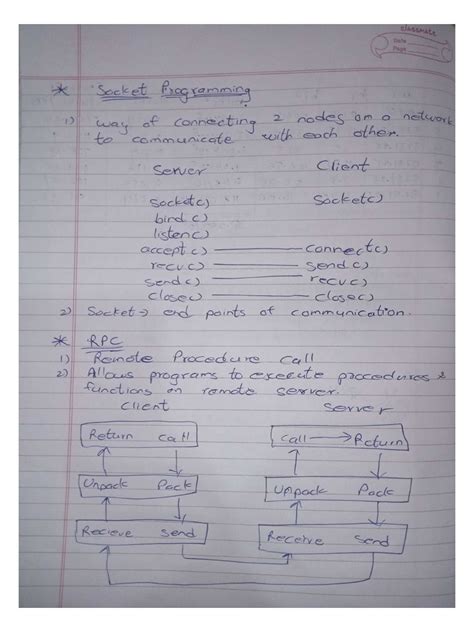 classmate
Date
Page
* Socket Programming
1) way of connecting 2 nodes on a network
to communicate with each other.
Server Client
socket() Socket()
bind()
listen()
accept() connect()
recv() send()
send() recv()
close() close()
2) Socket → end points of communication.
* RPC
1) Remote Procedure call
2) Allows programs to execute procedures &
functions on remote server.
Client Server
Return call call → Return
Unpack Pack Unpack Pack
Recieve Send Receive Send